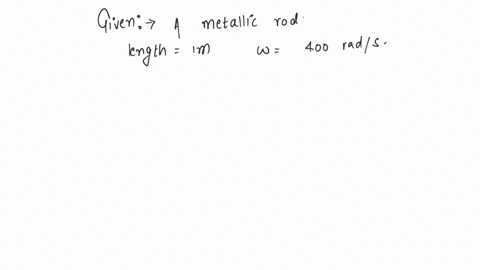 Given:→ A metallic rod.
length = 1m ω = 400 rad/s.